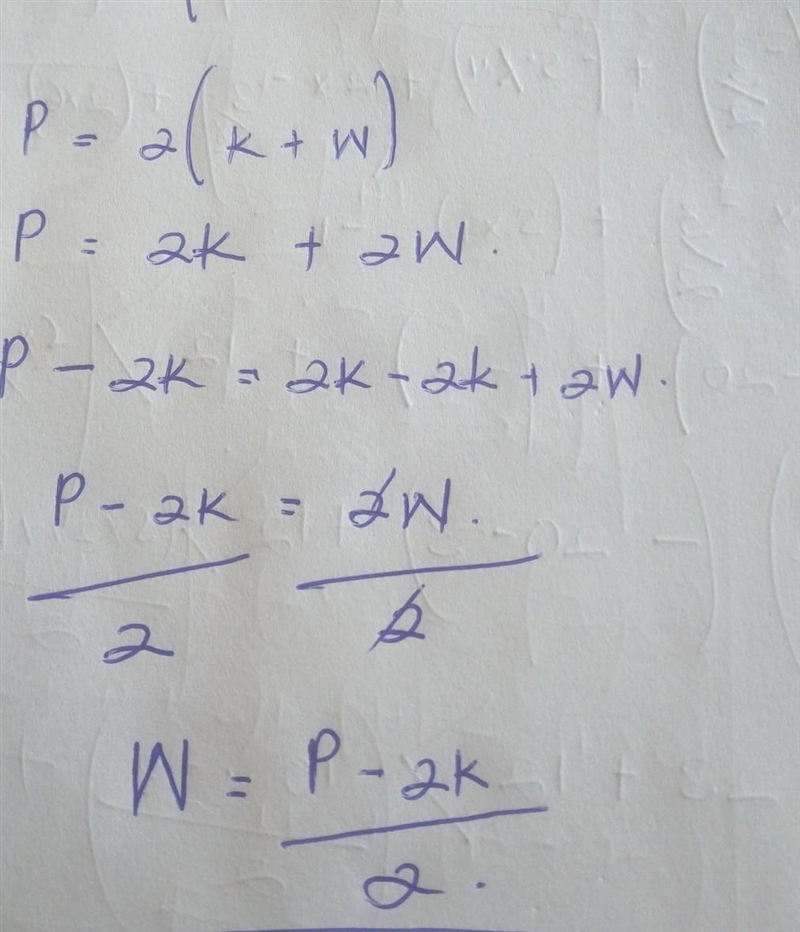 P = 2(k + W)
P = 2K + 2W.
P - 2K = 2K - 2k + 2W.
P - 2K = 2W.
2 2
W = P - 2K
2.